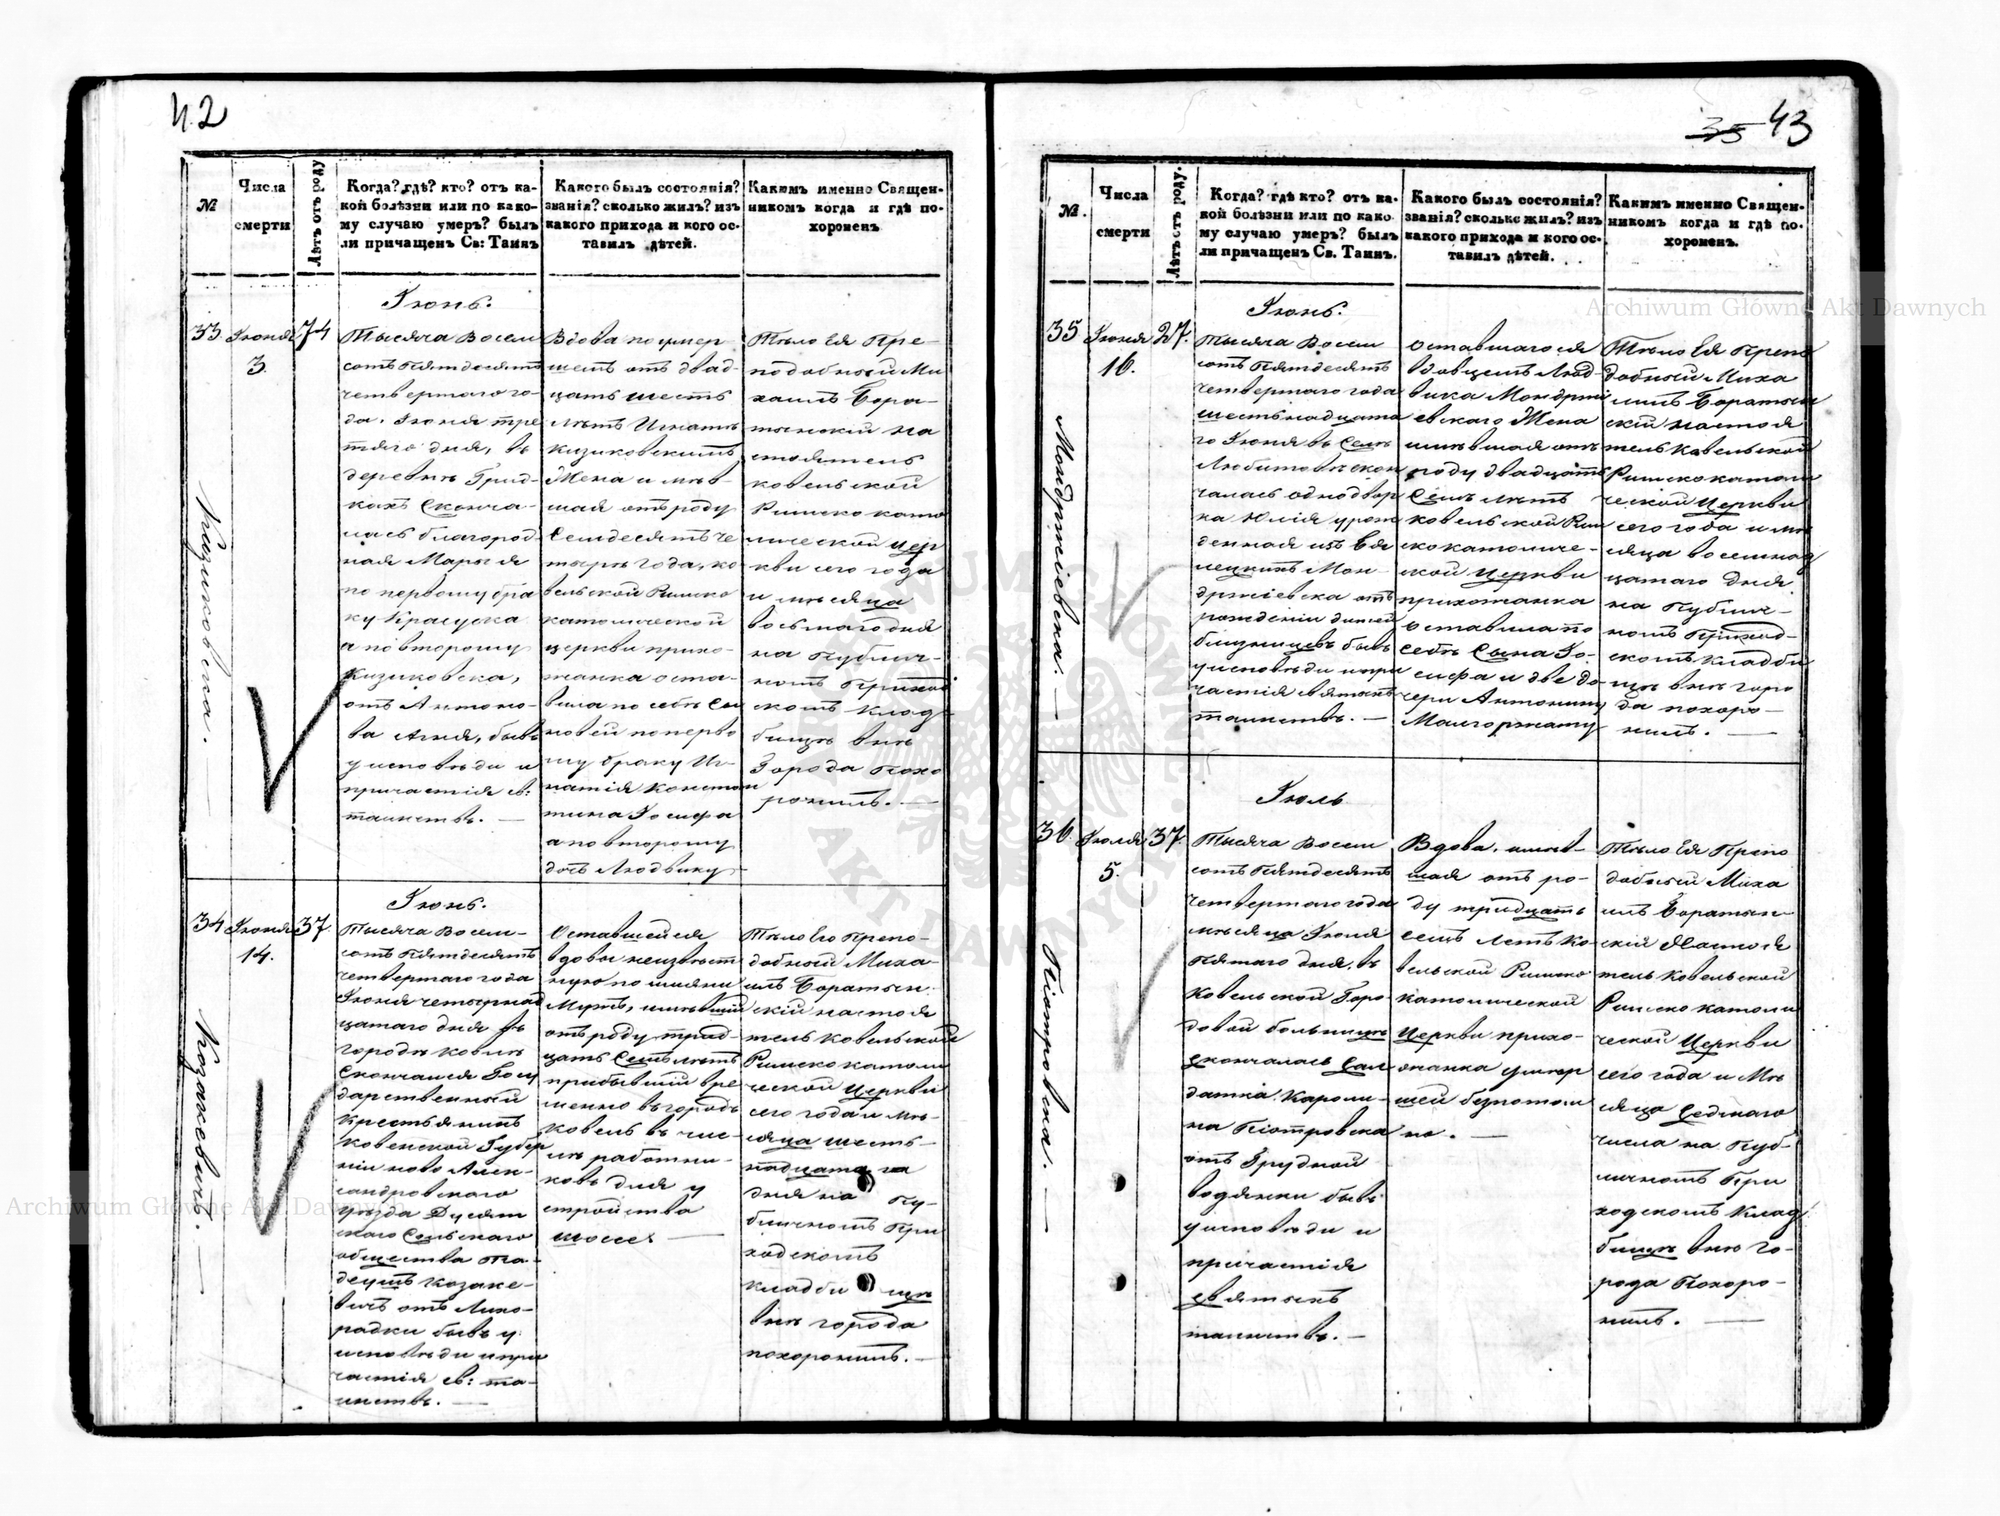 42
№
Числа
смерти
Лѣтъ отъ роду
Когда? гдѣ? кто? отъ ка-
кой болѣзни или по како-
му случаю умеръ? былъ
ли причащенъ Св: Таинъ
Какого былъ состоянія?
званія? сколько жилъ? изъ
какого прихода и кого ос-
тавилъ дѣтей.
Какимъ именно Священ-
никомъ когда и гдѣ по-
хороненъ
33
Іюня
3.
74
Іюнь.
Тысяча восем
сотъ пятдесятъ
четвертаго го-
да. Іюня тре
тяго дня, въ
деревнѣ Грид-
кахъ сконча-
лась благород-
ная Марыя
по первому бра
ку Красуска
а по второму
Кизиковска,
отъ Антоно-
ва Агня, бывъ
у исповѣди и
причастія св:
таинствъ. —
Вдова по умер
шемъ отъ двад-
цать шесть
лѣтъ Игнатѣ
Кизиковскимъ
Жена имѣв-
шая отъ роду
Семдесятъ че
тыре года, ко
вельской Римско
католической
церкви прихо-
жанка оста-
вила по себѣ сы
новей по перво
му браку Иг-
натія Констан
тина Іосифа
а по второму
дочь Людвику
Тѣло Ея Пре-
подобный Ми
хаилъ Бора-
тынскій на
стоятель
ковельской
Римско като
лической цер
кви сего года
и мѣсяца
восьмаго дня
на публич-
номъ приход
скомъ клад-
бищѣ внѣ
города похо
ронилъ. —
Кизиковска. —
34
Іюня
14.
37
Іюнь.
Тысяча восем-
сотъ пятдесятъ
четвертаго года
Іюня четырнад
цатаго дня въ
городѣ Ковлѣ
Скончался Госу
дарственный
Крестьянинъ
Ковенской Губер
ніи ново Алек-
сандровскаго
уѣзда Дусят
скаго Сельскаго
общества Та-
деушъ Козаке-
вичъ отъ Лихо-
радки бывъ у
исповѣди и при
частія св: та-
инствъ. —
Оставшейся
вдовы неизвѣст
ную по имяни
Мужъ, имѣвшій
отъ роду трид-
цать Семь лѣтъ
прибывший вре
менно въ городъ
Ковель въ чис-
лѣ работни-
ковъ для у
стройства
шоссе. —
Тѣло Его Препо-
добный Миха-
илъ Боратын-
скій настоя
тель ковельской
Римско католи
ческой Церкви
сего года и мѣ-
сяца шесть-
надцатаго
дня на пу-
бличномъ при
ходскомъ
кладбищѣ
внѣ города
похоронилъ. —
Козакевичъ. —
35 43
№.
Числа
смерти
Лѣтъ отъ роду.
Когда? гдѣ кто? отъ ка-
кой болѣзни или по како
му случаю умеръ? былъ
ли причащенъ Св. Таинъ.
Какого былъ состоянія?
званія? сколько жилъ? изъ
какого прихода и кого ос-
тавилъ дѣтей.
Какимъ именно Священ-
никомъ когда и гдѣ по-
хороненъ.
35
Іюня
16.
27.
Іюнь.
Тысяча Восем
сотъ пятдесятъ
четвертаго года
шестьнадцата
го Іюня въ Селѣ
Любитовѣ скон
чалась однодвор
ка Юлія урож
денная изъ Бя
лецкихъ Мон-
држіевска отъ
рожденія дитей
близнецевъ бывъ
у исповѣди и при
частія святыхъ
таинствъ. —
Оставшагося
вдовцемъ Люд-
вика Мондржі
евскаго Жена
имѣвшая отъ
роду двадцать
Семь лѣтъ
ковельской Рим
ско католиче-
ской Церкви
прихожанка
оставила по
себѣ Сына Іо-
сифа и две до-
чери Антонину
Малгоржату
Тѣло Ея Препо
добный Миха
илъ Боратын
скій настоя
тель Ковельской
Римско католи
ческой Церкви
сего года и мѣ
сяца восемнад
цатаго дня
на публич-
номъ приход-
скомъ кладби
щѣ внѣ горо
да похоро-
нилъ. —
Мондржіевска. —
36.
Іюля
5.
37.
Іюль
Тысяча Восем
сотъ пятдесятъ
четвертаго года
мѣсяца Іюля
пятаго дня, въ
Ковельской Горо-
довой больницѣ
скончалась Сал
датка Кароли-
на Піотровска
отъ Грудной
водянки бывъ
у исповѣди и
причастія
святыхъ
таинствъ. —
Вдова, имѣв-
шая отъ ро-
ду тридцать
семь Летъ ко
вельской Римско
католической
Церкви прихо-
жанка умер
шей безпотом
но. —
Тѣло Ея Препо
добный Миха
илъ Боратын-
скій Настоя
тель Ковельской
Римско католи
ческой Церкви
сего года и Мѣ
сяца Седмаго
числа на Пуб-
личномъ При
ходскомъ Клад
бищѣ внѣ го-
рода Похоро-
нилъ. —
Піотровска. —
Archiwum Główne Akt Dawnych
Archiwum Główne Akt Dawnych
ARCHIWUM GŁÓWNE
AKT DAWNYCH